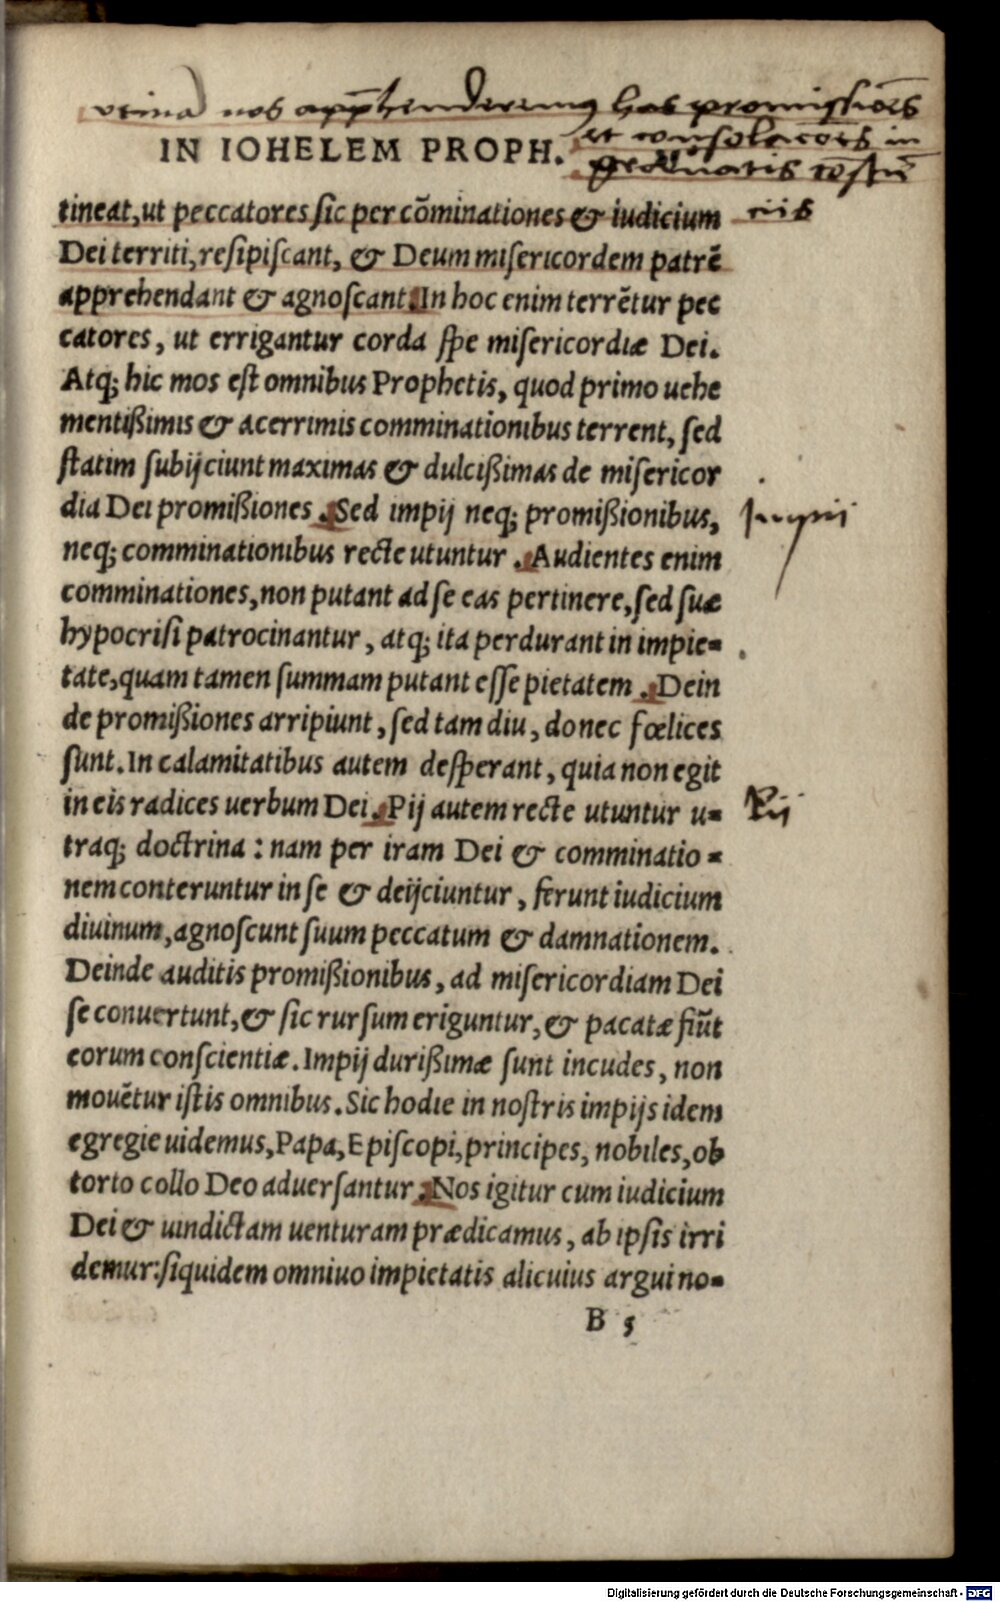 utina nos app̄henderemus has promissiões
IN IOHELEM PROPH.
et consolacões in
tineat, ut peccatores sic per cōminationes & iudicium
Dei territi, resipiscant, & Deum misericordem patrē
apprehendant & agnoscant. In hoc enim terrētur pec
catores, ut errigantur corda spe misericordiæ Dei.
Atq; hic mos est omnibus Prophetis, quod primo uehe
mentißimis & acerrimis comminationibus terrent, sed
statim subijciunt maximas & dulcißimas de misericor
dia Dei promißiones. Sed impij neq; promißionibus,
Impii
neq; comminationibus recte utuntur. Audientes enim
comminationes, non putant ad se eas pertinere, sed suæ
hypocrisi patrocinantur, atq; ita perdurant in impie=
tate, quam tamen summam putant esse pietatem. Dein
de promißiones arripiunt, sed tam diu, donec fœlices
sunt. In calamitatibus autem desperant, quia non egit
in eis radices uerbum Dei. Pij autem recte utuntur u=
Pij
traq; doctrina: nam per iram Dei & comminatio=
nem conteruntur in se & deijciuntur, ferunt iudicium
diuinum, agnoscunt suum peccatum & damnationem.
Deinde auditis promißionibus, ad misericordiam Dei
se conuertunt, & sic rursum eriguntur, & pacatæ fiūt
eorum conscientiæ. Impij durißimæ sunt incudes, non
mouētur istis omnibus. Sic hodie in nostris impijs idem
egregie uidemus, Papa, Episcopi, principes, nobiles, ob
torto collo Deo aduersantur. Nos igitur cum iudicium
Dei & uindictam uenturam prædicamus, ab ipsis irri
demur: siquidem omniuo impietatis alicuius argui no=
B 5
Digitalisierung gefördert durch die Deutsche Forschungsgemeinschaft - DFG